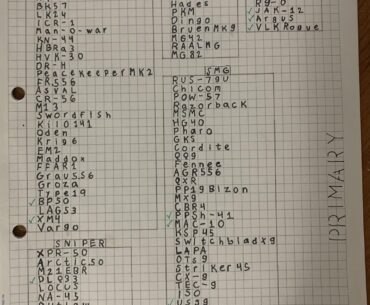 BK57
LK24
ICR-1
Man-o-war
KN-44
HBRa3
HVK-30
DR-H
Peacekeeper MK2
FR556
AsVAL
CR-56
M13
Swordfish
Kilo141
Oden
Krig6
EM2
Maddox
FFAR1
Grau5.56
Groza
Type19
BP50
LAG53
XM4
Vargo
SNIPER
XPR-50
Arctic.50
M21EBR
DLQ33
LOCUS
NA-45
Hades
PKM
Dingo
Bruen MK9
MG42
RAALMG
MG82
SMG
RUS-79U
Chicom
PDW-57
Razorback
MSMC
HG40
Pharo
GKS
Cordite
QQ9
Fennec
AGR556
QXR
PP19 Bizon
MX9
CBR4
PPSh-41
MAC-10
KSP45
Switchblade X9
LAPA
OTs9
Striker45
CX-9
TEC-9
ISO
USS9
R9-0
JAK-12
Argus
VLK Rogue
PRIMARY